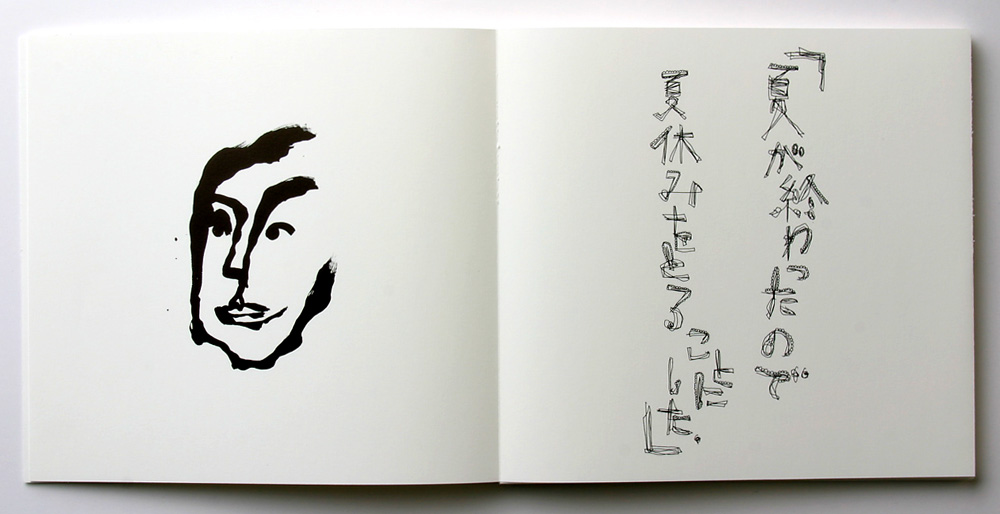 「夏が終わったので
夏休みをとることにした。」